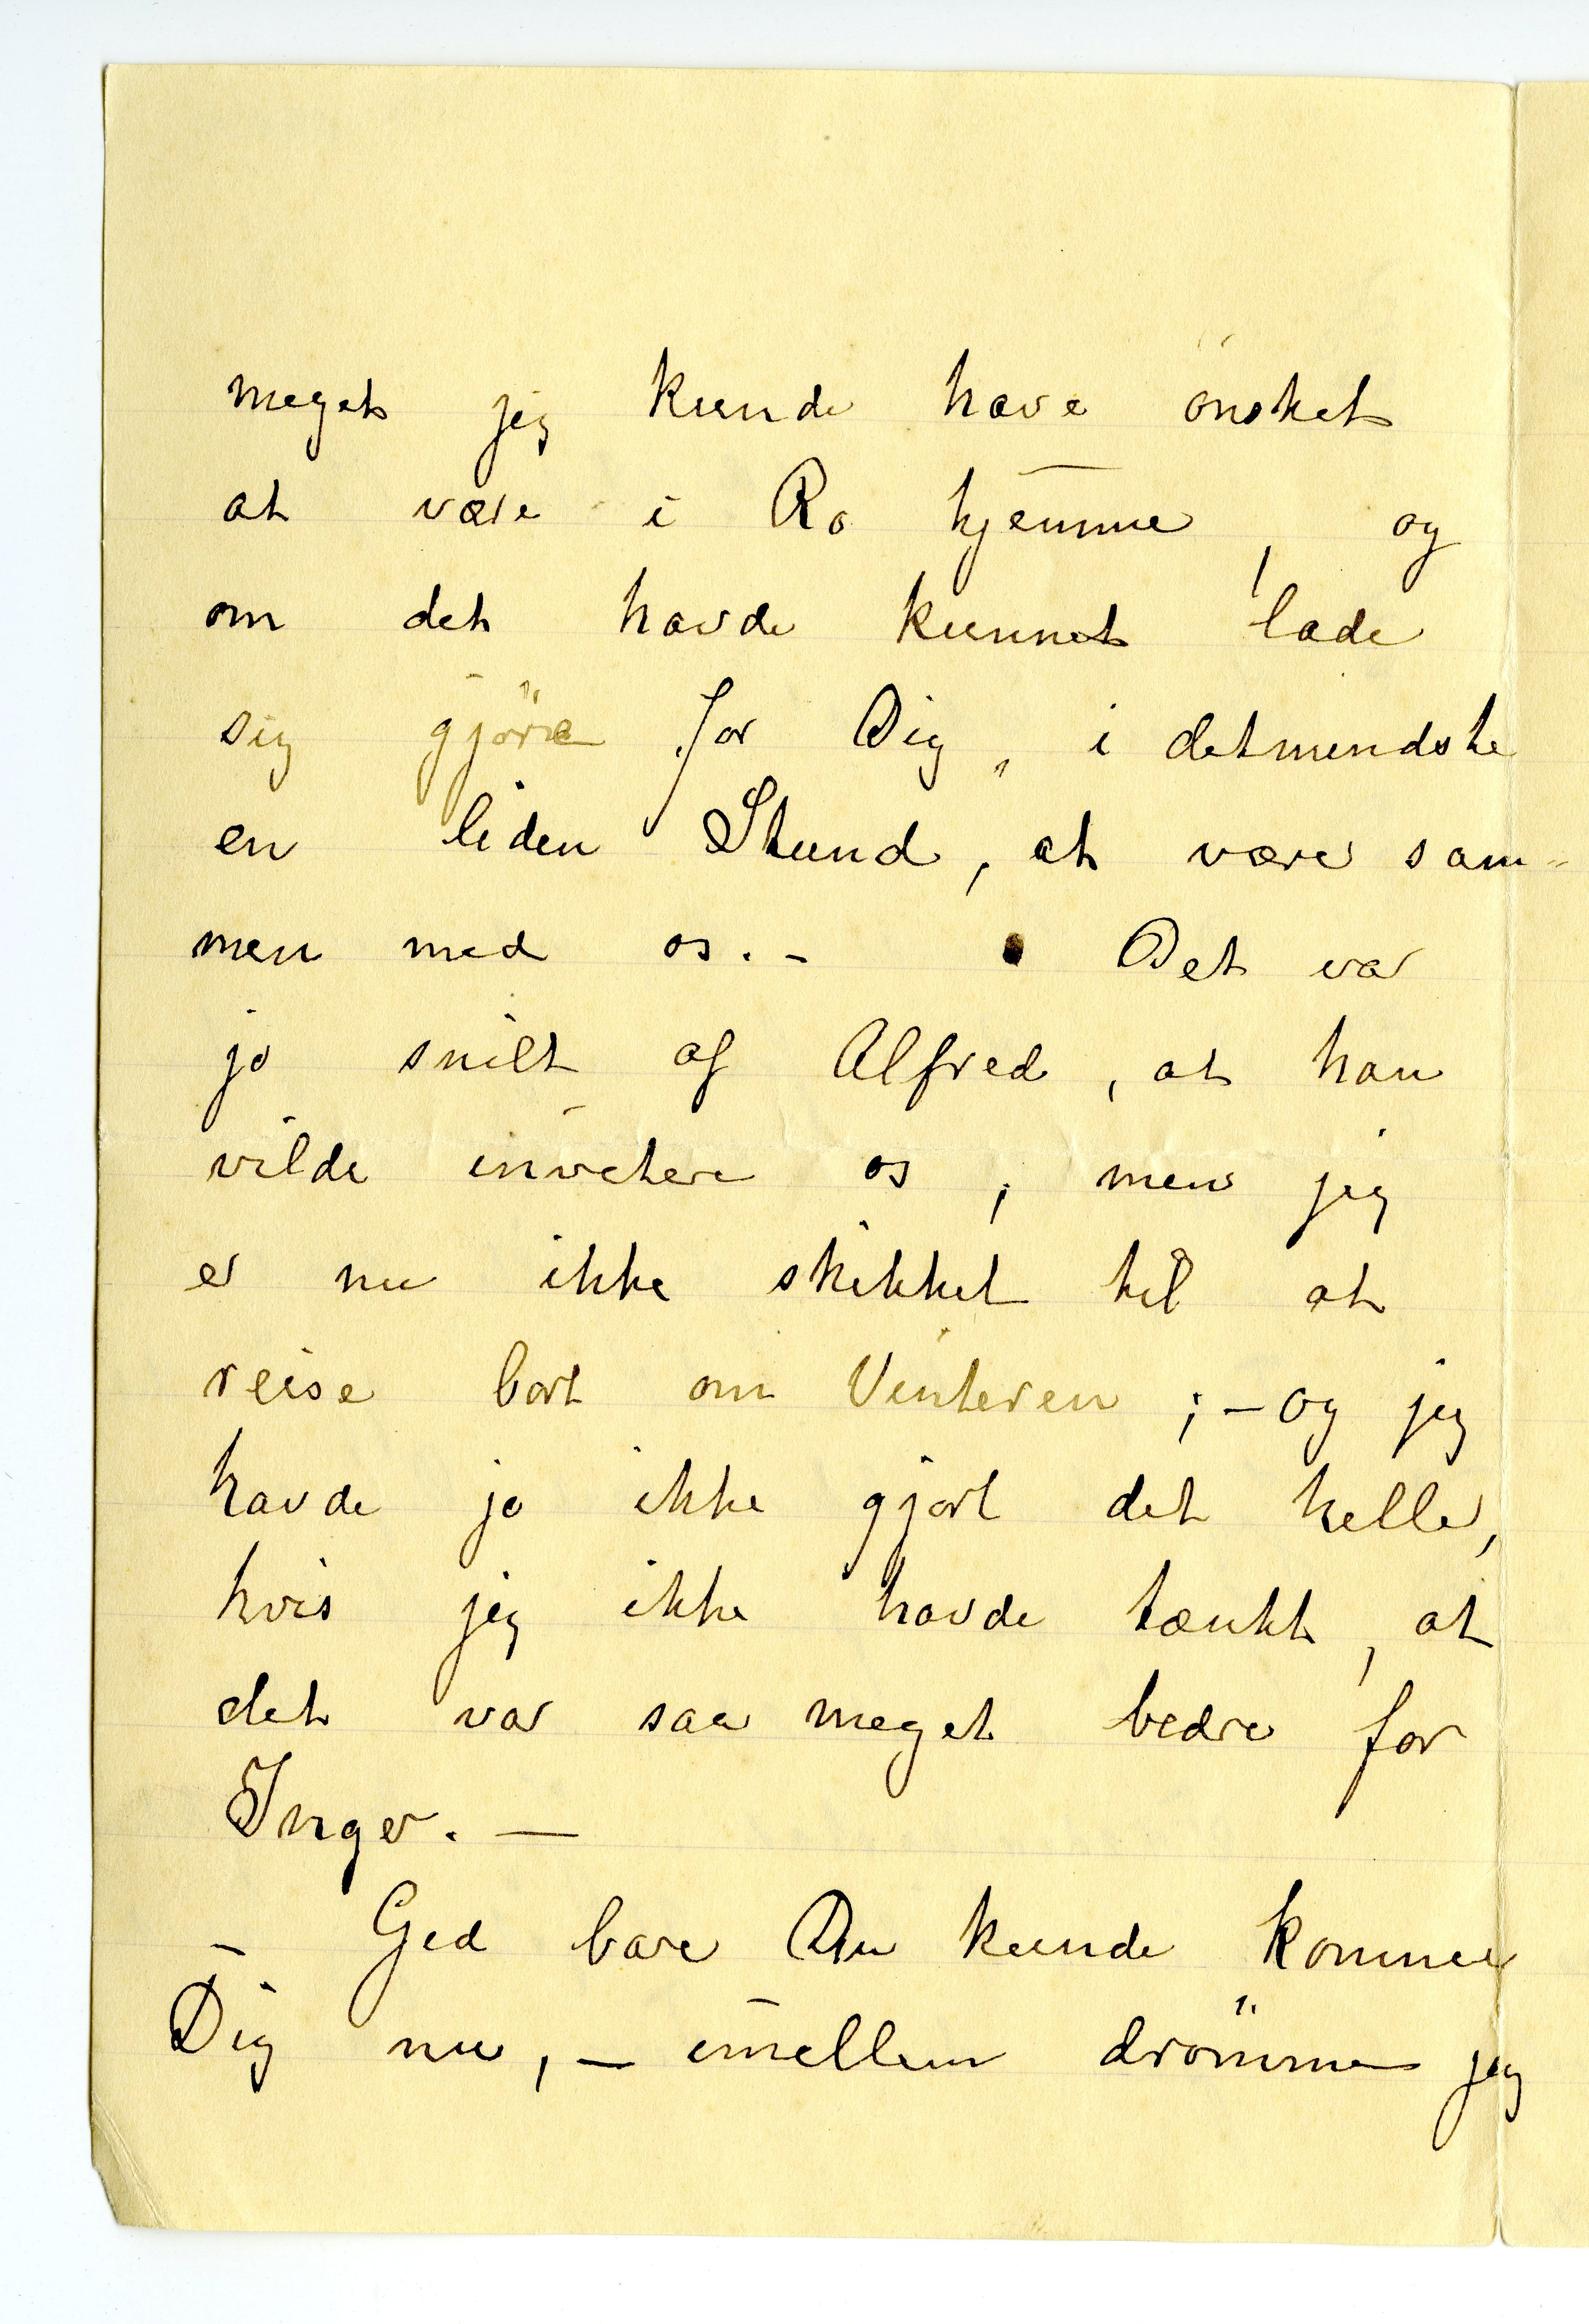 meget jeg kunde have önsket
at være i Ro hjemme, og
om det havde kunnet lade
sig gjöre for Dig, i detmindste
en liden Stund, at være sam-
men med os. - Det var
jo snilt af Alfred, at han
vilde invitere os; men jeg
er nu ikke skikket til at
reise bort om Vinteren; - og jeg
havde jo ikke gjort det heller,
hvis jeg ikke havde tænkt, at
det var saa meget bedre for
Inger. —
Gid bare Du kunde komme
Dig nu, — imellem drömmer jeg